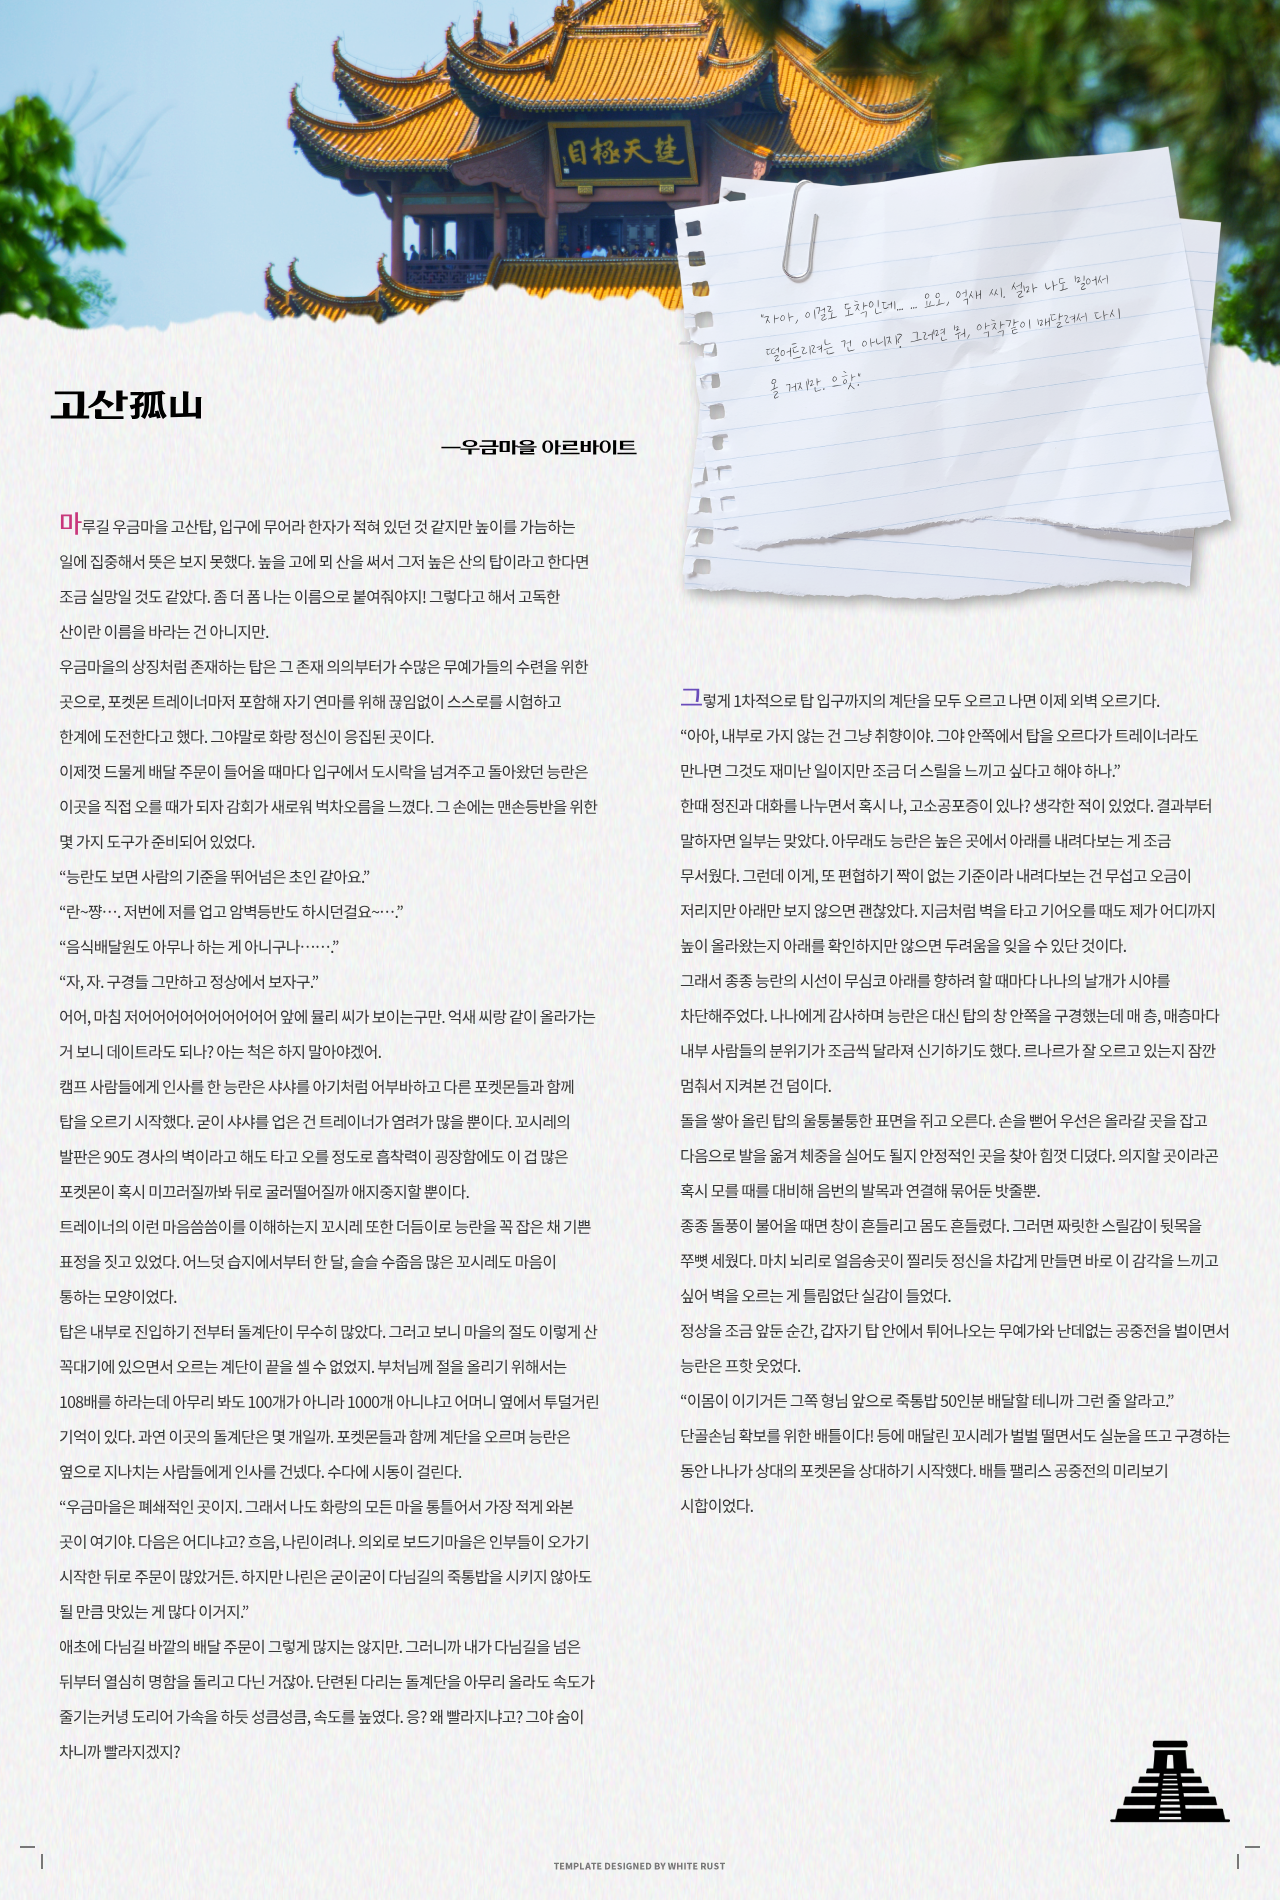 目極天楚
"자아, 이걸로 도착인데... ... 요요, 억새 씨. 설마 나도 밀어서
떨어뜨리려는 건 아니지? 그러면 뭐, 악착같이 매달려서 다시
올 거지만. 으핫."
고산孤山
—우금마을 아르바이트
마루길 우금마을 고산탑, 입구에 무어라 한자가 적혀 있던 것 같지만 높이를 가늠하는
일에 집중해서 뜻은 보지 못했다. 높을 고에 뫼 산을 써서 그저 높은 산의 탑이라고 한다면
조금 실망일 것도 같았다. 좀 더 폼 나는 이름으로 붙여줘야지! 그렇다고 해서 고독한
산이란 이름을 바라는 건 아니지만.
우금마을의 상징처럼 존재하는 탑은 그 존재 의의부터가 수많은 무예가들의 수련을 위한
곳으로, 포켓몬 트레이너마저 포함해 자기 연마를 위해 끊임없이 스스로를 시험하고
한계에 도전한다고 했다. 그야말로 화랑 정신이 응집된 곳이다.
이제껏 드물게 배달 주문이 들어올 때마다 입구에서 도시락을 넘겨주고 돌아왔던 능란은
이곳을 직접 오를 때가 되자 감회가 새로워 벅차오름을 느꼈다. 그 손에는 맨손등반을 위한
몇 가지 도구가 준비되어 있었다.
“능란도 보면 사람의 기준을 뛰어넘은 초인 같아요.”
“란~쨩…. 저번에 저를 업고 암벽등반도 하시던걸요~….”
“음식배달원도 아무나 하는 게 아니구나…….”
“자, 자. 구경들 그만하고 정상에서 보자구.”
어어, 마침 저어어어어어어어어어어 앞에 뮬리 씨가 보이는구만. 억새 씨랑 같이 올라가는
거 보니 데이트라도 되나? 아는 척은 하지 말아야겠어.
캠프 사람들에게 인사를 한 능란은 샤샤를 아기처럼 어부바하고 다른 포켓몬들과 함께
탑을 오르기 시작했다. 굳이 샤샤를 업은 건 트레이너가 염려가 많을 뿐이다. 꼬시레의
발판은 90도 경사의 벽이라고 해도 타고 오를 정도로 흡착력이 굉장함에도 이 겁 많은
포켓몬이 혹시 미끄러질까봐 뒤로 굴러떨어질까 애지중지할 뿐이다.
트레이너의 이런 마음씀씀이를 이해하는지 꼬시레 또한 더듬이로 능란을 꼭 잡은 채 기쁜
표정을 짓고 있었다. 어느덧 습지에서부터 한 달, 슬슬 수줍음 많은 꼬시레도 마음이
통하는 모양이었다.
탑은 내부로 진입하기 전부터 돌계단이 무수히 많았다. 그러고 보니 마을의 절도 이렇게 산
꼭대기에 있으면서 오르는 계단이 끝을 셀 수 없었지. 부처님께 절을 올리기 위해서는
108배를 하라는데 아무리 봐도 100개가 아니라 1000개 아니냐고 어머니 옆에서 투덜거린
기억이 있다. 과연 이곳의 돌계단은 몇 개일까. 포켓몬들과 함께 계단을 오르며 능란은
옆으로 지나치는 사람들에게 인사를 건넸다. 수다에 시동이 걸린다.
“우금마을은 폐쇄적인 곳이지. 그래서 나도 화랑의 모든 마을 통틀어서 가장 적게 와본
곳이 여기야. 다음은 어디냐고? 흐음, 나린이려나. 의외로 보드기마을은 인부들이 오가기
시작한 뒤로 주문이 많았거든. 하지만 나린은 굳이굳이 다님길의 죽통밥을 시키지 않아도
될 만큼 맛있는 게 많다 이거지.”
애초에 다님길 바깥의 배달 주문이 그렇게 많지는 않지만. 그러니까 내가 다님길을 넘은
뒤부터 열심히 명함을 돌리고 다닌 거잖아. 단련된 다리는 돌계단을 아무리 올라도 속도가
줄기는커녕 도리어 가속을 하듯 성큼성큼, 속도를 높였다. 응? 왜 빨라지냐고? 그야 숨이
차니까 빨라지겠지?
그렇게 1차적으로 탑 입구까지의 계단을 모두 오르고 나면 이제 외벽 오르기다.
“아아, 내부로 가지 않는 건 그냥 취향이야. 그야 안쪽에서 탑을 오르다가 트레이너라도
만나면 그것도 재미난 일이지만 조금 더 스릴을 느끼고 싶다고 해야 하나.”
한때 정진과 대화를 나누면서 혹시 나, 고소공포증이 있나? 생각한 적이 있었다. 결과부터
말하자면 일부는 맞았다. 아무래도 능란은 높은 곳에서 아래를 내려다보는 게 조금
무서웠다. 그런데 이게, 또 편협하기 짝이 없는 기준이라 내려다보는 건 무섭고 오금이
저리지만 아래만 보지 않으면 괜찮았다. 지금처럼 벽을 타고 기어오를 때도 제가 어디까지
높이 올라왔는지 아래를 확인하지만 않으면 두려움을 잊을 수 있단 것이다.
그래서 종종 능란의 시선이 무심코 아래를 향하려 할 때마다 나나의 날개가 시야를
차단해주었다. 나나에게 감사하며 능란은 대신 탑의 창 안쪽을 구경했는데 매 층, 매층마다
내부 사람들의 분위기가 조금씩 달라져 신기하기도 했다. 르나르가 잘 오르고 있는지 잠깐
멈춰서 지켜본 건 덤이다.
돌을 쌓아 올린 탑의 울퉁불퉁한 표면을 쥐고 오른다. 손을 뻗어 우선은 올라갈 곳을 잡고
다음으로 발을 옮겨 체중을 실어도 될지 안정적인 곳을 찾아 힘껏 디뎠다. 의지할 곳이라곤
혹시 모를 때를 대비해 음번의 발목과 연결해 묶어둔 밧줄뿐.
종종 돌풍이 불어올 때면 창이 흔들리고 몸도 흔들렸다. 그러면 짜릿한 스릴감이 뒷목을
쭈뼛 세웠다. 마치 뇌리로 얼음송곳이 찔리듯 정신을 차갑게 만들면 바로 이 감각을 느끼고
싶어 벽을 오르는 게 틀림없단 실감이 들었다.
정상을 조금 앞둔 순간, 갑자기 탑 안에서 튀어나오는 무예가와 난데없는 공중전을 벌이면서
능란은 프핫 웃었다.
“이몸이 이기거든 그쪽 형님 앞으로 죽통밥 50인분 배달할 테니까 그런 줄 알라고.”
단골손님 확보를 위한 배틀이다! 등에 매달린 꼬시레가 벌벌 떨면서도 실눈을 뜨고 구경하는
동안 나나가 상대의 포켓몬을 상대하기 시작했다. 배틀 팰리스 공중전의 미리보기
시합이었다.
TEMPLATE DESIGNED BY WHITE RUST